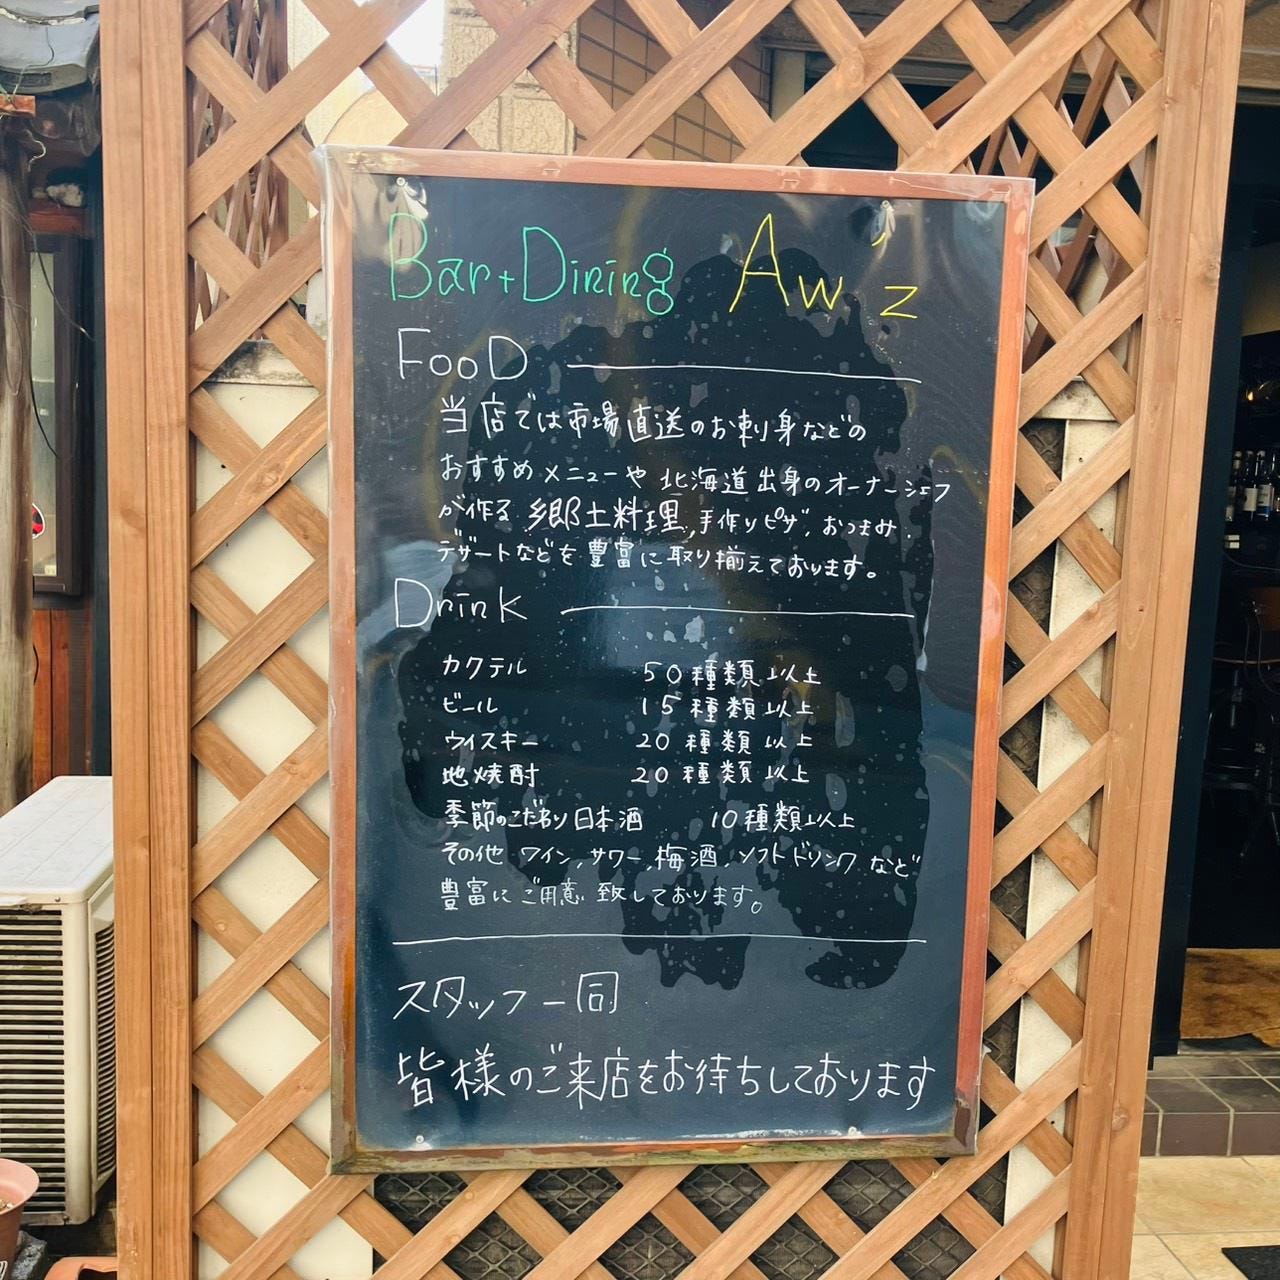 Bar+Dining Aw'z
FooD
当店では市場直送のお刺身などの
おすすめメニューや北海道出身のオーナーシェフ
が作る郷土料理,手作りピザ,おつまみ,
デザートなどを豊富に取り揃えております。
Drink
カクテル 50種類以上
ビール 15種類以上
ウイスキー 20種類以上
地焼酎 20種類以上
季節のこだわり日本酒 10種類以上
その他 ワイン,サワー,梅酒,ソフトドリンクなど
豊富にご用意致しております。
スタッフ一同
皆様のご来店をお待ちしております